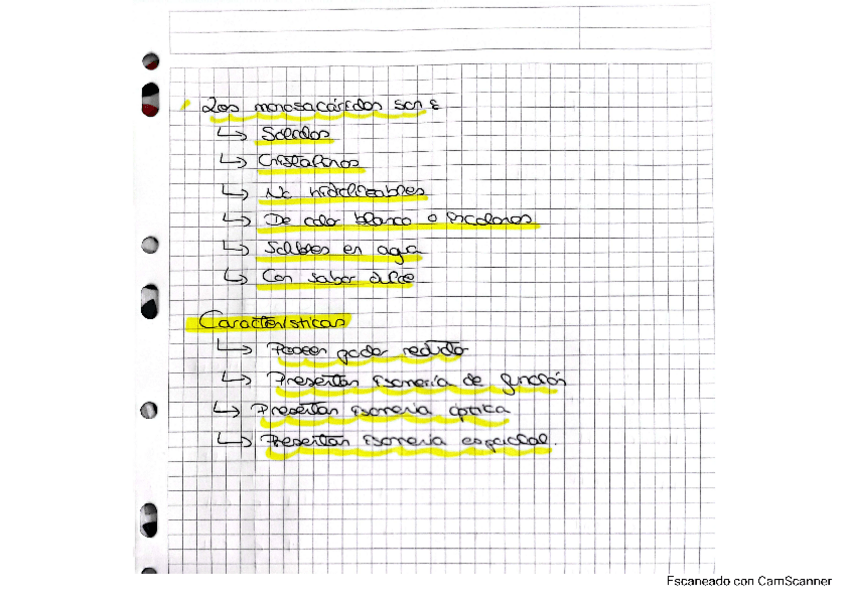 Los monosacáridos son:
↳ Sólidos
↳ Cristalinos
↳ No hidrolizables
↳ De color blanco o incoloros
↳ Solubles en agua
↳ Con sabor dulce
Características
↳ Poseen poder reductor
↳ Presentan isomería de función
↳ Presentan isomería óptica
↳ Presentan isomería espacial.
Escaneado con CamScanner